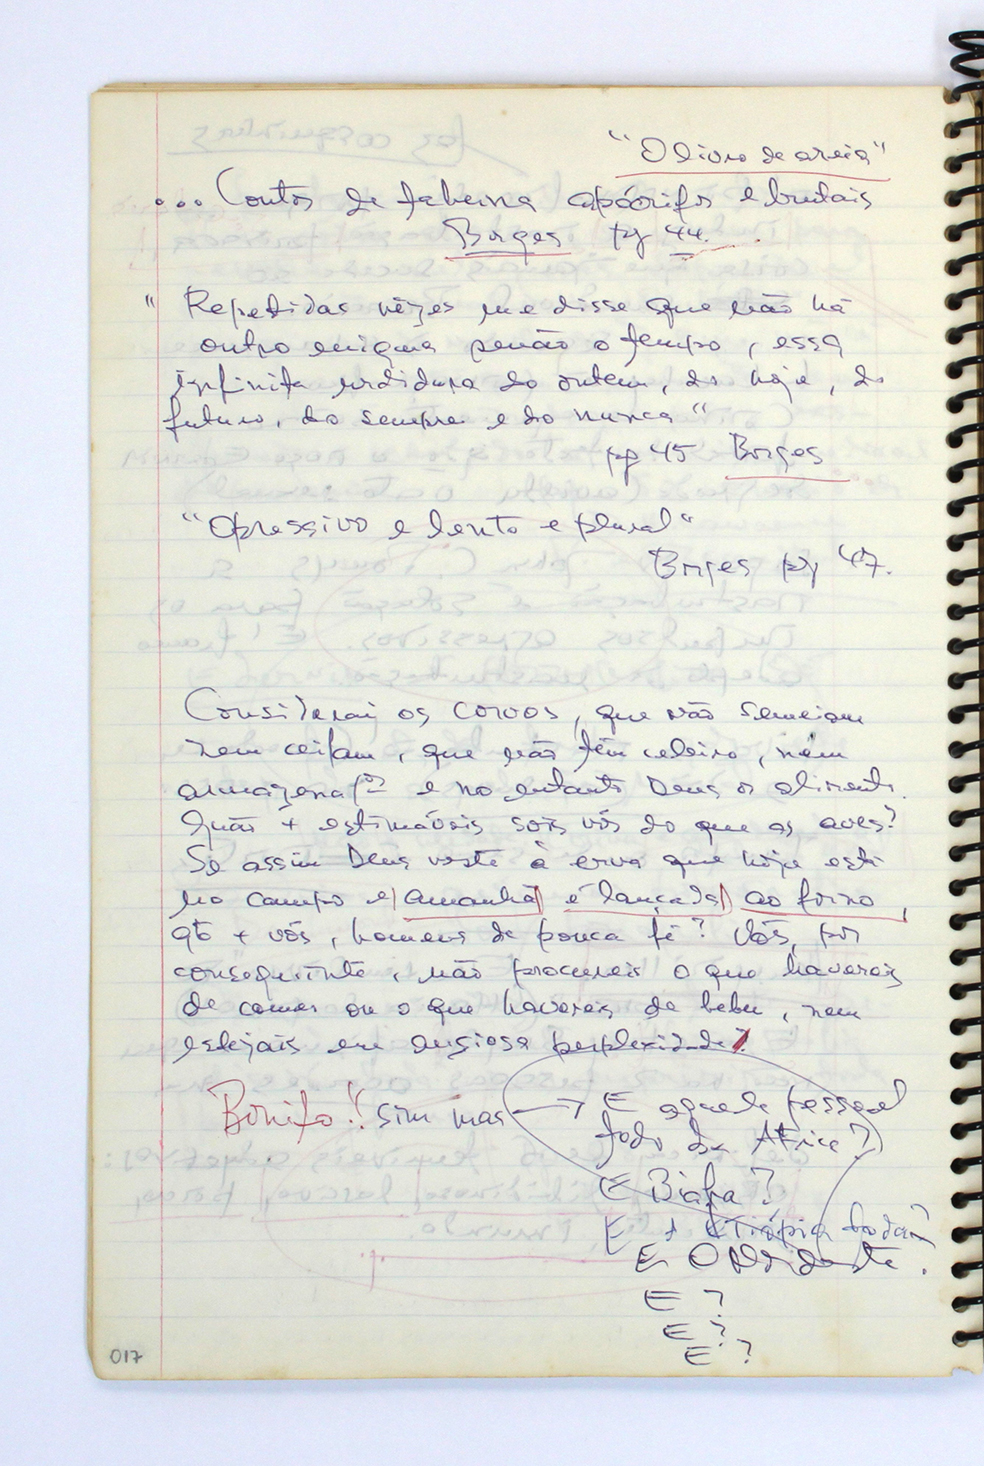 "O livro de areia"
... Contos de taberna apócrifos e brutais
Borges pg 44.
" Repetidas vêzes me disse que não há
outro enigma senão o tempo, essa
infinita urdidura do ontem, do hoje, do
futuro, do sempre e do nunca "
pg 45 Borges
"Opressivo e lento e plural"
Borges pg 47.
Considerai os corvos, que não semeiam
nem ceifam, que não têm celeiro, nem
armazena e no entanto Deus os alimenta.
Quão + estimáveis sois vós do que as aves?
Se assim Deus veste à erva que hoje está
no campo e amanhã é lançada ao forno,
qto + vós, homens de pouca fé? Vós, por
conseguinte, não procureis o que havereis
de comer ou o que havereis de beber, nem
estejais em ansiosa perplexidade?
Bonito!! sim mas → E aquele pessoal
todo da Africa?
E Biafra?
E a Etiópia toda?
E O Nordeste.
E ?
E ?
E ?
017